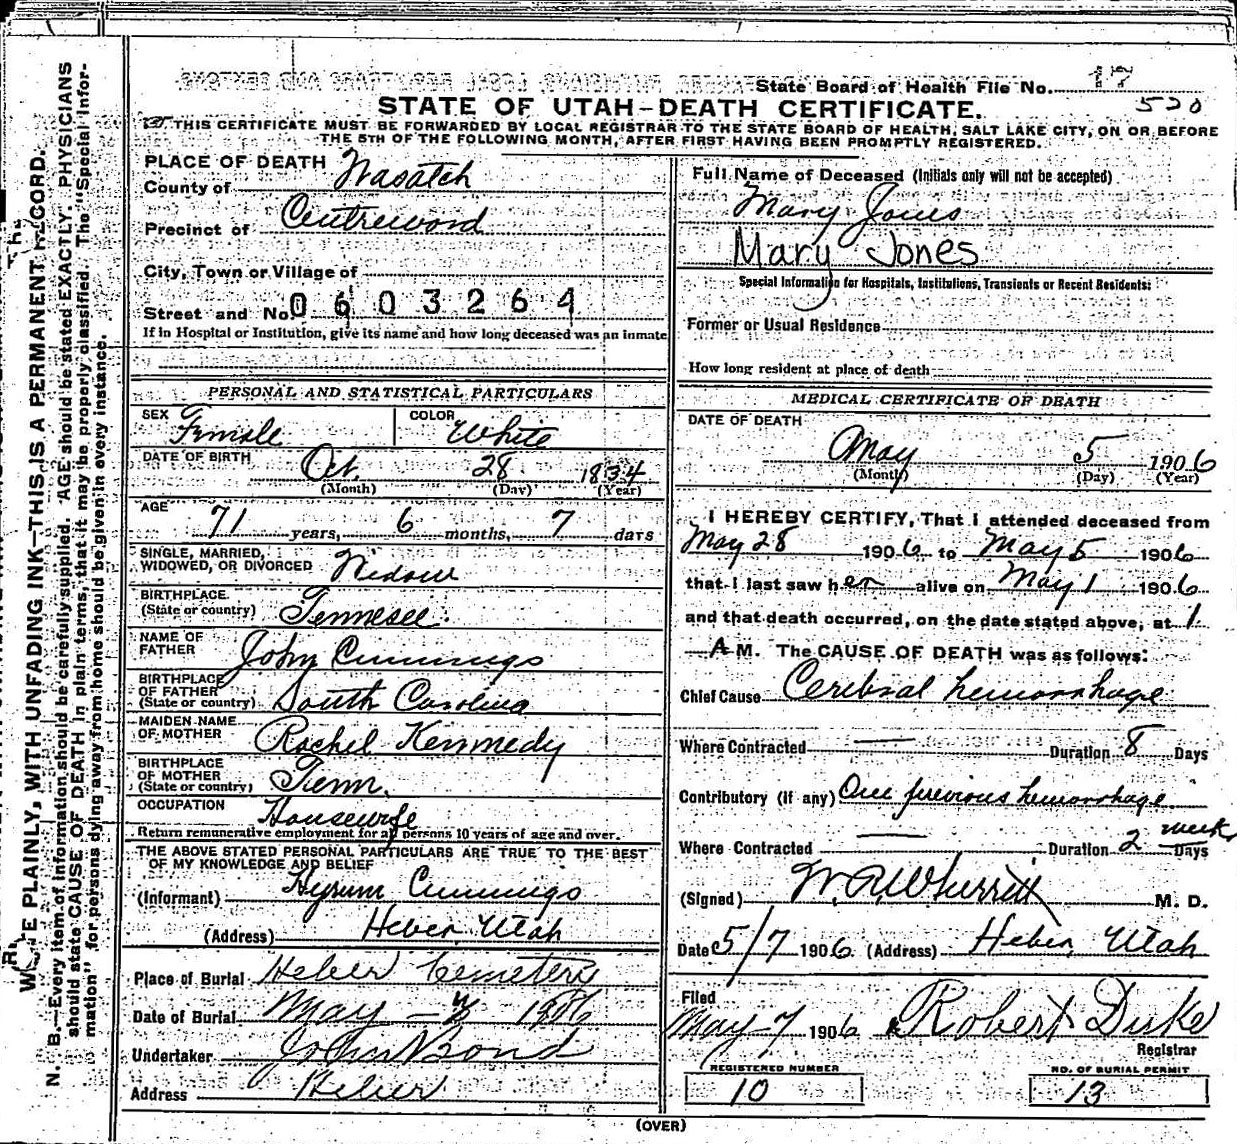 State Board of Health File No. 17
520
STATE OF UTAH-DEATH CERTIFICATE.
THIS CERTIFICATE MUST BE FORWARDED BY LOCAL REGISTRAR TO THE STATE BOARD OF HEALTH, SALT LAKE CITY, ON OR BEFORE
THE 5TH OF THE FOLLOWING MONTH, AFTER FIRST HAVING BEEN PROMPTLY REGISTERED.
PLACE OF DEATH
County of Wasatch
Precinct of Centrewood
City, Town or Village of
Street and No. 0603264
If in Hospital or Institution, give its name and how long deceased was an inmate
PERSONAL AND STATISTICAL PARTICULARS
SEX Female COLOR White
DATE OF BIRTH Oct. 28 1834
(Month) (Day) (Year)
AGE 71 years, 6 months, 7 days
SINGLE, MARRIED,
WIDOWED, OR DIVORCED Widow
BIRTHPLACE
(State or country) Tennesee.
NAME OF
FATHER John Cummings
BIRTHPLACE
OF FATHER
(State or country) South Carolina
MAIDEN NAME
OF MOTHER Rachel Kennedy
BIRTHPLACE
OF MOTHER
(State or country) Tenn.
OCCUPATION Housewife
Return remunerative employment for all persons 10 years of age and over.
THE ABOVE STATED PERSONAL PARTICULARS ARE TRUE TO THE BEST
OF MY KNOWLEDGE AND BELIEF
(Informant) Hyrum Cummings
(Address) Heber, Utah
Place of Burial Heber Cemetery
Date of Burial May - 1906
Undertaker John Bond
Address Heber
Full Name of Deceased (Initials only will not be accepted)
Mary Jones
Mary Jones
Special Information for Hospitals, Institutions, Transients or Recent Residents:
Former or Usual Residence
How long resident at place of death
MEDICAL CERTIFICATE OF DEATH
DATE OF DEATH
May 5 1906
(Month) (Day) (Year)
I HEREBY CERTIFY, That I attended deceased from
May 28 1906 to May 5 1906
that I last saw her alive on May 1 1906
and that death occurred, on the date stated above, at 1
A M. The CAUSE OF DEATH was as follows:
Chief Cause Cerebral hemorrhage
Where Contracted — Duration 8 Days
Contributory (if any) One previous hemorrhage
Where Contracted — Duration 2 weeks Days
(Signed) W.R. Wherritt M. D.
Date 5/7 1906 (Address) Heber, Utah
Filed
May 7 1906 Robert Duke
Registrar
REGISTERED NUMBER NO. OF BURIAL PERMIT
10 13
(OVER)
WRITE PLAINLY, WITH UNFADING INK—THIS IS A PERMANENT RECORD.
N. B.—Every item of information should be carefully supplied. AGE should be stated EXACTLY. PHYSICIANS
should state CAUSE OF DEATH in plain terms, that it may be properly classified. The "Special Infor-
mation" for persons dying away from home should be given in every instance.